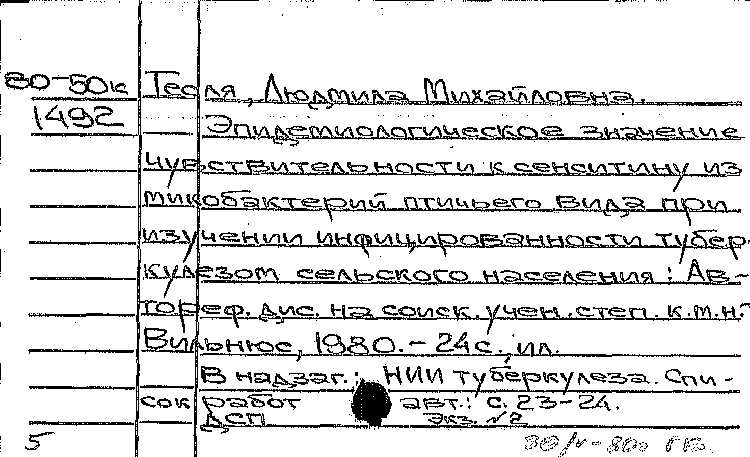 80-50к Тесля, Людмила Михайловна.
1492 Эпидемиологическое значение
чувствительности к сенситину из
микобактерий птичьего вида при
изучении инфицированности тубер-
кулезом сельского населения: Ав-
тореф. дис. на соиск. учен. степ. к.м.н.
Вильнюс, 1980. - 24 с., ил.
В надзаг.: НИИ туберкулеза. Спи-
сок работ авт.: с. 23-24.
ДСП экз. №2
5